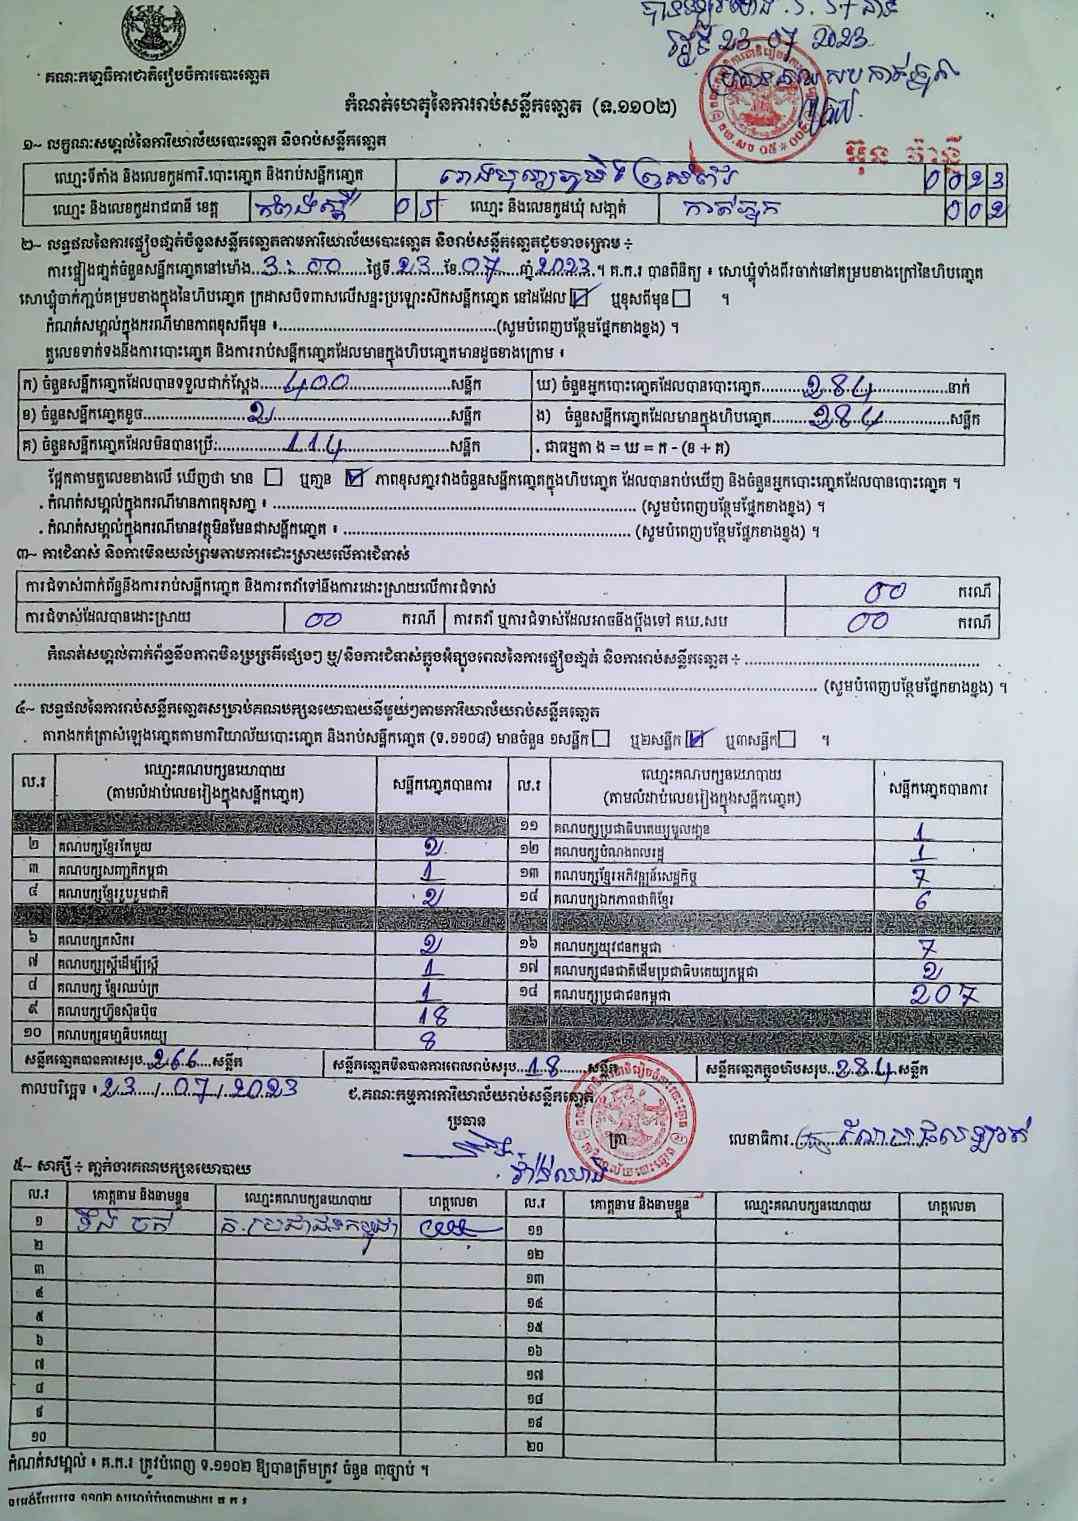 ថ្ងៃទី 23 07 2023
គណៈកម្មាធិការជាតិរៀបចំការបោះឆ្នោត
កំណត់ហេតុនៃការរាប់សន្លឹកឆ្នោត (ទ.១១០២)
១~ លក្ខណៈសម្គាល់នៃការិយាល័យបោះឆ្នោត និងរាប់សន្លឹកឆ្នោត
ឈ្មោះទីតាំង និងលេខកូដការិ.បោះឆ្នោត និងរាប់សន្លឹកឆ្នោត 0023
ឈ្មោះ និងលេខកូដរាជធានី ខេត្ត កំពង់ស្ពឺ 05 ឈ្មោះ និងលេខកូដឃុំ សង្កាត់ 002
២~ លទ្ធផលនៃការផ្ទៀងផ្ទាត់ចំនួនសន្លឹកឆ្នោតតាមការិយាល័យបោះឆ្នោត និងរាប់សន្លឹកឆ្នោតដូចខាងក្រោម ÷
ការផ្ទៀងផ្ទាត់ចំនួនសន្លឹកឆ្នោតនៅម៉ោង 3:00 ថ្ងៃទី 23 ខែ 07 ឆ្នាំ 2023 ។ គ.ក.រ បានពិនិត្យ ៖ សោឃ្មុំទាំងពីរចាក់នៅគម្របខាងក្រៅនៃហិបឆ្នោត
សោឃ្មុំចាក់ភ្ជាប់គម្របខាងក្នុងនៃហិបឆ្នោត ក្រដាសបិទពាសលើសន្ទះប្រឡោះស៊កសន្លឹកឆ្នោត នៅដដែល ☑ ឬខុសពីមុន ☐ ។
កំណត់សម្គាល់ក្នុងករណីមានភាពខុសពីមុន ៖ (សូមបំពេញបន្ថែមផ្នែកខាងខ្នង) ។
តួលេខទាក់ទងនឹងការបោះឆ្នោត និងការរាប់សន្លឹកឆ្នោតដែលមានក្នុងហិបឆ្នោតមានដូចខាងក្រោម ៖
ក) ចំនួនសន្លឹកឆ្នោតដែលបានទទួលជាក់ស្តែង 400 សន្លឹក ឃ) ចំនួនអ្នកបោះឆ្នោតដែលបានបោះឆ្នោត 284 នាក់
ខ) ចំនួនសន្លឹកឆ្នោតខូច 2 សន្លឹក ង) ចំនួនសន្លឹកឆ្នោតដែលមានក្នុងហិបឆ្នោត 284 សន្លឹក
គ) ចំនួនសន្លឹកឆ្នោតដែលមិនបានប្រើ: 114 សន្លឹក . ជាធម្មតា ង = ឃ = ក - (ខ + គ)
ផ្អែកតាមតួលេខខាងលើ ឃើញថា មាន ☐ ឬគ្មាន ☑ ភាពខុសគ្នារវាងចំនួនសន្លឹកឆ្នោតក្នុងហិបឆ្នោត ដែលបានរាប់ឃើញ និងចំនួនអ្នកបោះឆ្នោតដែលបានបោះឆ្នោត ។
. កំណត់សម្គាល់ក្នុងករណីមានភាពខុសគ្នា ៖ (សូមបំពេញបន្ថែមផ្នែកខាងខ្នង) ។
. កំណត់សម្គាល់ក្នុងករណីមានវត្ថុមិនមែនជាសន្លឹកឆ្នោត ៖ (សូមបំពេញបន្ថែមផ្នែកខាងខ្នង) ។
៣~ ការជំទាស់ និងការមិនយល់ព្រមតាមការដោះស្រាយលើការជំទាស់
ការជំទាស់ពាក់ព័ន្ធនឹងការរាប់សន្លឹកឆ្នោត និងការតវ៉ាទៅនឹងការដោះស្រាយលើការជំទាស់ 00 ករណី
ការជំទាស់ដែលបានដោះស្រាយ 00 ករណី ការតវ៉ា ឬការជំទាស់ដែលអាចនឹងប្តឹងទៅ គឃ.សប 00 ករណី
កំណត់សម្គាល់ពាក់ព័ន្ធនឹងភាពមិនប្រក្រតីផ្សេងៗ ឬ/និងការជំទាស់ក្នុងអំឡុងពេលនៃការផ្ទៀងផ្ទាត់ និងការរាប់សន្លឹកឆ្នោត ÷
(សូមបំពេញបន្ថែមផ្នែកខាងខ្នង) ។
៤~ លទ្ធផលនៃការរាប់សន្លឹកឆ្នោតសម្រាប់គណបក្សនយោបាយនីមួយៗតាមការិយាល័យរាប់សន្លឹកឆ្នោត
តារាងកត់ត្រាសំឡេងឆ្នោតតាមការិយាល័យបោះឆ្នោត និងរាប់សន្លឹកឆ្នោត (ទ.១១០៨) មានចំនួន ១សន្លឹក ☐ ឬ២សន្លឹក ☑ ឬ៣សន្លឹក ☐ ។
ល.រ ឈ្មោះគណបក្សនយោបាយ (តាមលំដាប់លេខរៀងក្នុងសន្លឹកឆ្នោត) សន្លឹកឆ្នោតបានការ ល.រ ឈ្មោះគណបក្សនយោបាយ (តាមលំដាប់លេខរៀងក្នុងសន្លឹកឆ្នោត) សន្លឹកឆ្នោតបានការ
១១ គណបក្សប្រជាធិបតេយ្យមូលដ្ឋាន 1
២ គណបក្សខ្មែរតែមួយ 2 ១២ គណបក្សបំណងពលរដ្ឋ 1
៣ គណបក្សសញ្ជាតិកម្ពុជា 1 ១៣ គណបក្សខ្មែរអភិវឌ្ឍន៍សេដ្ឋកិច្ច 7
៤ គណបក្សខ្មែររួបរួមជាតិ 2 ១៤ គណបក្សឯកភាពជាតិខ្មែរ 6
៦ គណបក្សកសិករ 2 ១៦ គណបក្សយុវជនកម្ពុជា 7
៧ គណបក្សស្ត្រីដើម្បីស្ត្រី 1 ១៧ គណបក្សជនជាតិដើមប្រជាធិបតេយ្យកម្ពុជា 2
៨ គណបក្ស ខ្មែរឈប់ក្រ 1 ១៨ គណបក្សប្រជាជនកម្ពុជា 207
៩ គណបក្សហ្វ៊ុនស៊ិនប៉ិច 18
១០ គណបក្សធម្មាធិបតេយ្យ 8
សន្លឹកឆ្នោតបានការសរុប 266 សន្លឹក សន្លឹកឆ្នោតមិនបានការពេលរាប់សរុប 18 សន្លឹក សន្លឹកឆ្នោតក្នុងហិបសរុប 284 សន្លឹក
កាលបរិច្ឆេទ ៖ 23/07/2023 ជ.គណៈកម្មការការិយាល័យរាប់សន្លឹកឆ្នោត
ប្រធាន ត្រា លេខាធិការ
៥~ សាក្សី ÷ ភ្នាក់ងារគណបក្សនយោបាយ
ល.រ គោត្តនាម និងនាមខ្លួន ឈ្មោះគណបក្សនយោបាយ ហត្ថលេខា ល.រ គោត្តនាម និងនាមខ្លួន ឈ្មោះគណបក្សនយោបាយ ហត្ថលេខា
១ គ.ប្រជាជនកម្ពុជា ១១
២ ១២
៣ ១៣
៤ ១៤
៥ ១៥
៦ ១៦
៧ ១៧
៨ ១៨
៩ ១៩
១០ ២០
កំណត់សម្គាល់ ៖ គ.ក.រ ត្រូវបំពេញ ទ.១១០២ ឱ្យបានត្រឹមត្រូវ ចំនួន ៣ច្បាប់ ។